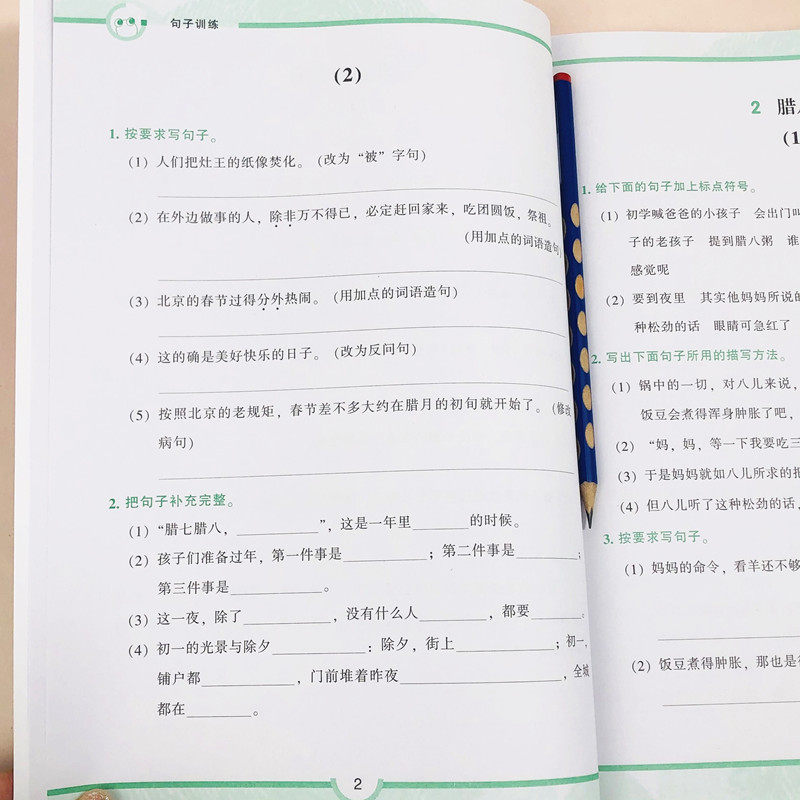 句子训练
(2)
1. 按要求写句子。
(1) 人们把灶王的纸像焚化。(改为“被”字句)
(2) 在外边做事的人，除非万不得已，必定赶回家来，吃团圆饭，祭祖。
(用加点的词语造句)
(3) 北京的春节过得分外热闹。(用加点的词语造句)
(4) 这的确是美好快乐的日子。(改为反问句)
(5) 按照北京的老规矩，春节差不多大约在腊月的初旬就开始了。(修改
病句)
2. 把句子补充完整。
(1) “腊七腊八，__________”，这是一年里_______的时候。
(2) 孩子们准备过年，第一件事是__________；第二件事是_______；
第三件事是__________。
(3) 这一夜，除了__________，没有什么人________，都要______。
(4) 初一的光景与除夕__________：除夕，街上__________；初一，
铺户都__________，门前堆着昨夜__________________，全城
都在_______。
2
2 腊八
(1
1. 给下面的句子加上标点符号。
(1) 初学喊爸爸的小孩子 会出门叫
子的老孩子 提到腊八粥 谁
感觉呢
(2) 要到夜里 其实他妈妈所说的
种松劲的话 眼睛可急红了
2. 写出下面句子所用的描写方法。
(1) 锅中的一切，对八儿来说，
饭豆会煮得浑身肿胀了吧，
(2) “妈，妈，等一下我要吃三
(3) 于是妈妈就如八儿所求的把
(4) 但八儿听了这种松劲的话，
3. 按要求写句子。
(1) 妈妈的命令，看羊还不够
(2) 饭豆煮得肿胀，那也是